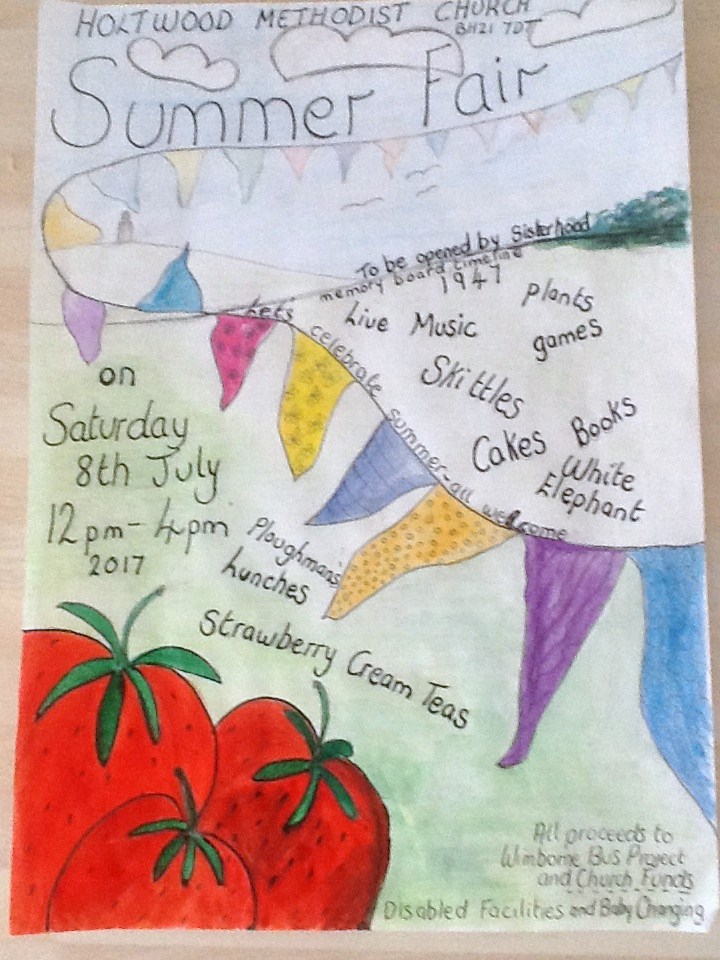 HOLTWOOD METHODIST CHURCH
BH21 7DT
Summer Fair
To be opened by Sisterhood
memory board timeline
1947
plants
Live Music
games
Let's celebrate summer-all welcome
Skittles
Cakes
Books
White
Elephant
on
Saturday
8th July
12pm-4pm
2017
Ploughman's
Lunches
Strawberry Cream Teas
All proceeds to
Wimborne Bus Project
and Church Funds
Disabled Facilities and Baby Changing